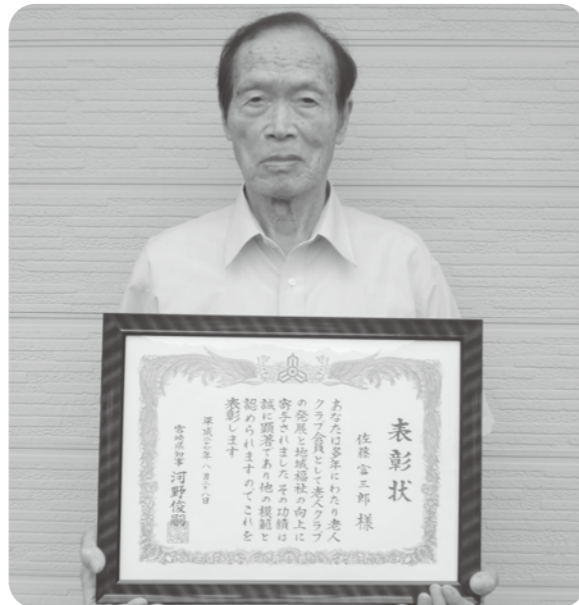 表彰状
佐藤富三郎 様
あなたは多年にわたり老人
クラブ会員として老人クラブ
の発展と地域福祉の向上に
寄与されましたその功績は
誠に顕著であり他の模範と
認められますのでこれを
表彰します
宮崎県知事 河野俊嗣